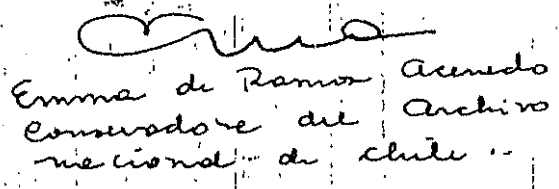 Emma de Ramos Acevedo
Conservadora del Archivo
nacional de Chile